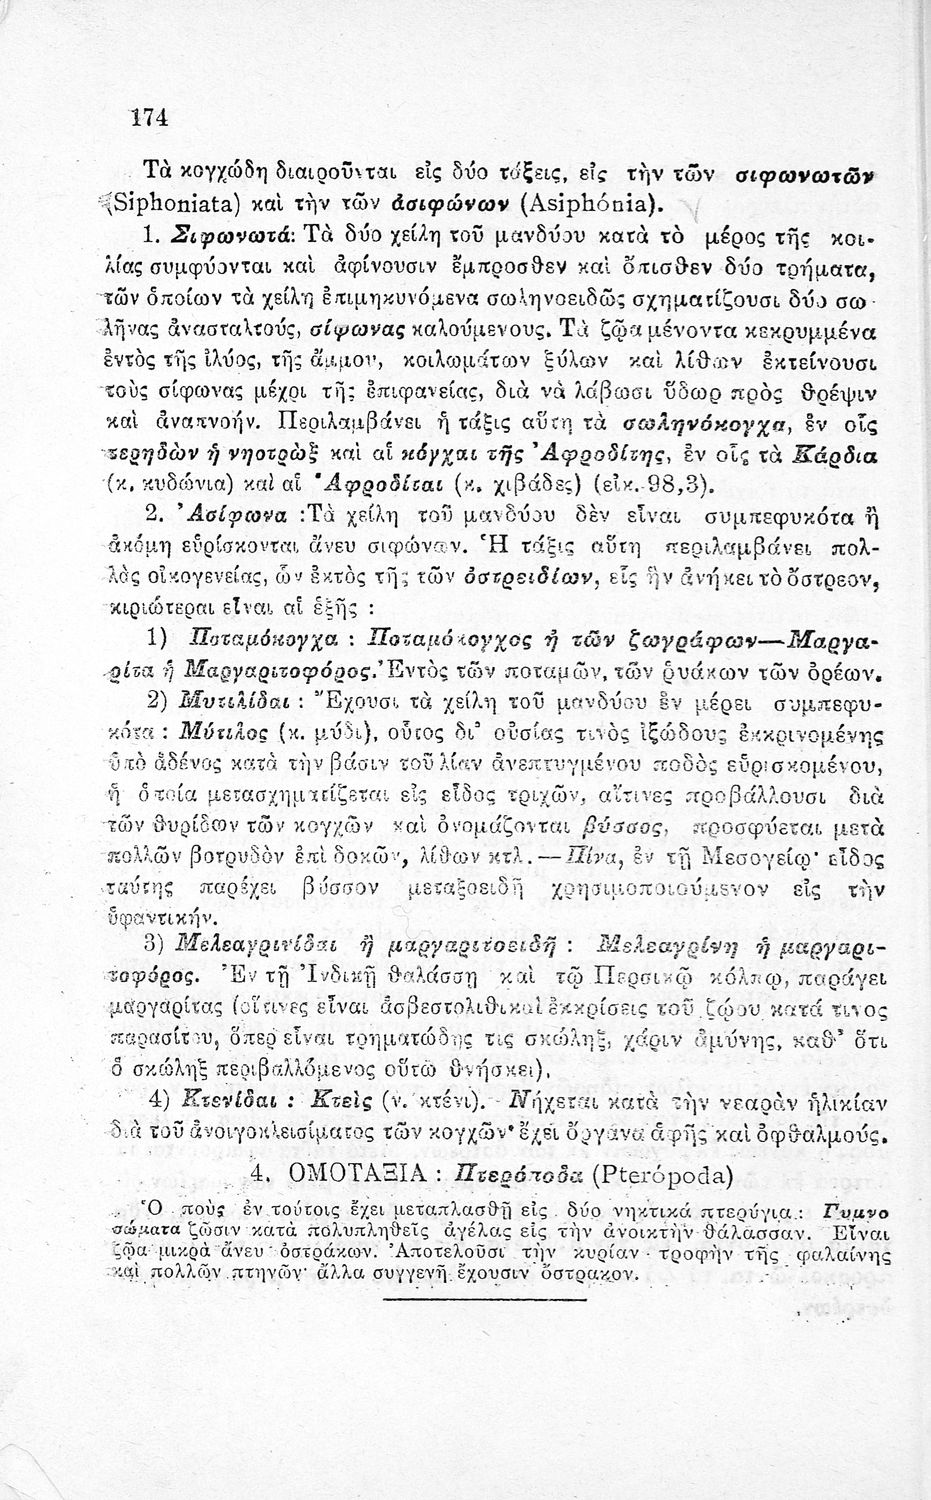 174
Τὰ κογχώδη διαιροῦνται εἰς δύο τάξεις, εἰς τὴν τῶν σιφωνωτῶν
(Siphoniata) καὶ τὴν τῶν ἀσιφώνων (Asiphónia).
1. Σιφωνωτά: Τὰ δύο χείλη τοῦ μανδύου κατὰ τὸ μέρος τῆς κοι-
λίας συμφύονται καὶ ἀφίνουσιν ἔμπροσθεν καὶ ὄπισθεν δύο τρήματα,
τῶν ὁποίων τὰ χείλη ἐπιμηκυνόμενα σωληνοειδῶς σχηματίζουσι δύο σω-
λῆνας ἀνασταλτούς, σίφωνας καλούμενους. Τὰ ζῷα μένοντα κεκρυμμένα
ἐντὸς τῆς ἰλύος, τῆς ἄμμου, κοιλωμάτων ξύλων καὶ λίθων ἐκτείνουσι
τοὺς σίφωνας μέχρι τῆς ἐπιφανείας, διὰ νὰ λάβωσι ὕδωρ πρὸς θρέψιν
καὶ ἀναπνοήν. Περιλαμβάνει ἡ τάξις αὕτη τὰ σωληνόκογχα, ἐν οἷς
τερηδὼν ἢ νηοτρὼξ καὶ αἱ κόγχαι τῆς Ἀφροδίτης, ἐν οἷς τὰ Κάρδια
(κ. κυδώνια) καὶ αἱ Ἀφροδῖται (κ. χιβάδες) (εἰκ. 98,3).
2. Ἀσίφωνα :Τὰ χείλη τοῦ μανδύου δὲν εἶναι συμπεφυκότα ἢ
ἀκόμη εὑρίσκονται ἄνευ σιφώνων. Ἡ τάξις αὕτη περιλαμβάνει πολ-
λὰς οἰκογενείας, ὧν ἐκτὸς τῆς τῶν ὀστρειδίων, εἰς ἣν ἀνήκει τὸ ὄστρεον,
κιριώτεραι εἶναι αἱ ἑξῆς :
1) Ποταμόκογχα : Ποταμόκογχος ἢ τῶν ζωγράφων—Μαργα-
ρίτα ἢ Μαργαριτοφόρος. Ἐντὸς τῶν ποταμῶν, τῶν ῥυάκων τῶν ὀρέων.
2) Μυτιλίδαι : Ἔχουσι τὰ χείλη τοῦ μανδύου ἐν μέρει συμπεφυ-
κότα : Μύτιλος (κ. μύδι), οὗτος δι' οὐσίας τινὸς ἰξώδους ἐκκρινομένης
ὑπὸ ἀδένος κατὰ τὴν βάσιν τοῦ λίαν ἀνεπτυγμένου ποδὸς εὑρισκομένου,
ἡ ὁποία μετασχηματίζεται εἰς εἶδος τριχῶν, αἵτινες προβάλλουσι διὰ
τῶν θυρίδων τῶν κογχῶν καὶ ὀνομάζονται βύσσος, προσφύεται μετὰ
πολλῶν βοτρυδὸν ἐπὶ δοκῶν, λίθων κτλ.—Πίνα, ἐν τῇ Μεσογείῳ· εἶδος
ταύτης παρέχει βύσσον μεταξοειδῆ χρησιμοποιούμενον εἰς τὴν
ὑφαντικήν.
3) Μελεαγρινίδαι ἢ μαργαριτοειδῆ : Μελεαγρίνη ἢ μαργαρι-
τοφόρος. Ἐν τῇ Ἰνδικῇ θαλάσσῃ καὶ τῷ Περσικῷ κόλπῳ, παράγει
μαργαρίτας (οἵτινες εἶναι ἀσβεστολιθικαὶ ἐκκρίσεις τοῦ ζῴου κατά τινος
παρασίτου, ὅπερ εἶναι τρηματώδης τις σκώληξ, χάριν ἀμύνης, καθ' ὅτι
ὁ σκώληξ περιβαλλόμενος οὕτω θνήσκει).
4) Κτενίδαι : Κτεὶς (ν. κτένι). Νήχεται κατὰ τὴν νεαρὰν ἡλικίαν
διὰ τοῦ ἀνοιγοκλεισίματος τῶν κογχῶν· ἔχει ὄργανα ἁφῆς καὶ ὀφθαλμούς.
4. ΟΜΟΤΑΞΙΑ : Πτερόποδα (Pterópoda)
Ὁ ποὺς ἐν τούτοις ἔχει μεταπλασθῇ εἰς δύο νηκτικά πτερύγια : Γυμνο
σώματα ζῶσιν κατὰ πολυπληθεῖς ἀγέλας εἰς τὴν ἀνοικτὴν θάλασσαν. Εἶναι
ζῷα μικρὰ ἄνευ ὀστράκων. Ἀποτελοῦσι τὴν κυρίαν τροφὴν τῆς φαλαίνης
καὶ πολλῶν πτηνῶν· ἄλλα συγγενῆ ἔχουσιν ὄστρακον.